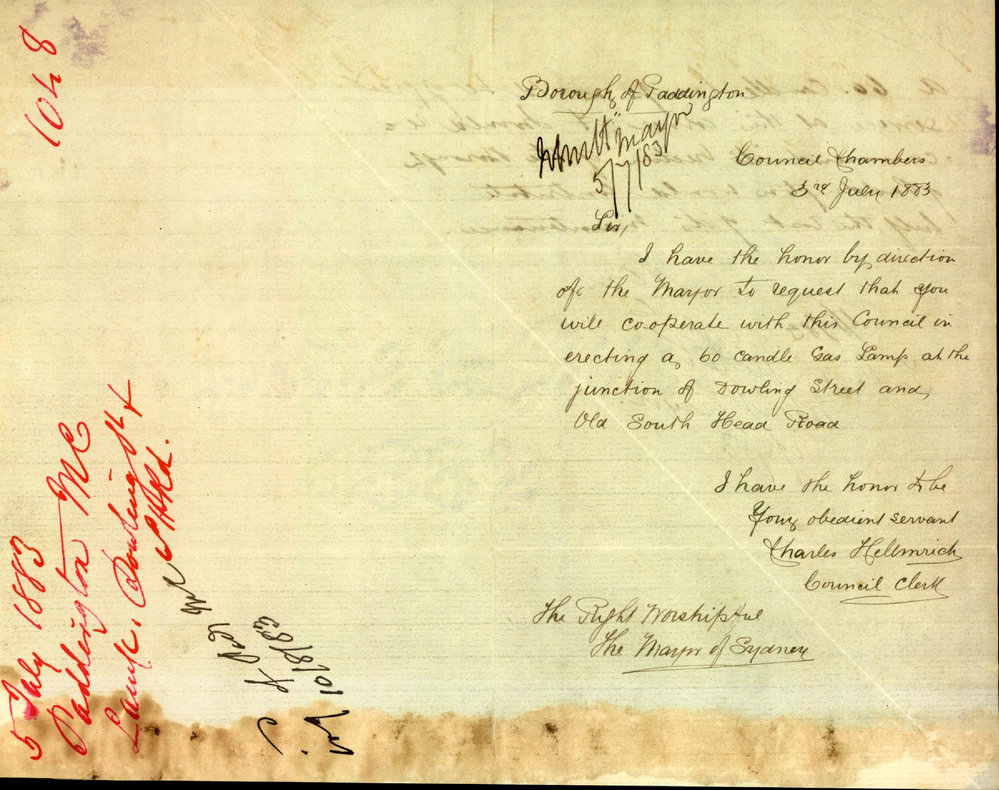 1048
5 July 1883
Paddington MC
Lamp, Dowling St &
S H Rd.
10/8/83
Borough of Paddington
Mayor
5/7/83
Council Chambers
3rd July 1883
Sir,
I have the honor by direction
of the Mayor to request that you
will cooperate with this Council in
erecting a 60 candle Gas Lamp at the
junction of Dowling Street and
Old South Head Road
I have the honor to be
Your obedient servant
Charles Hellmrich
Council Clerk
The Right Worshipful
The Mayor of Sydney